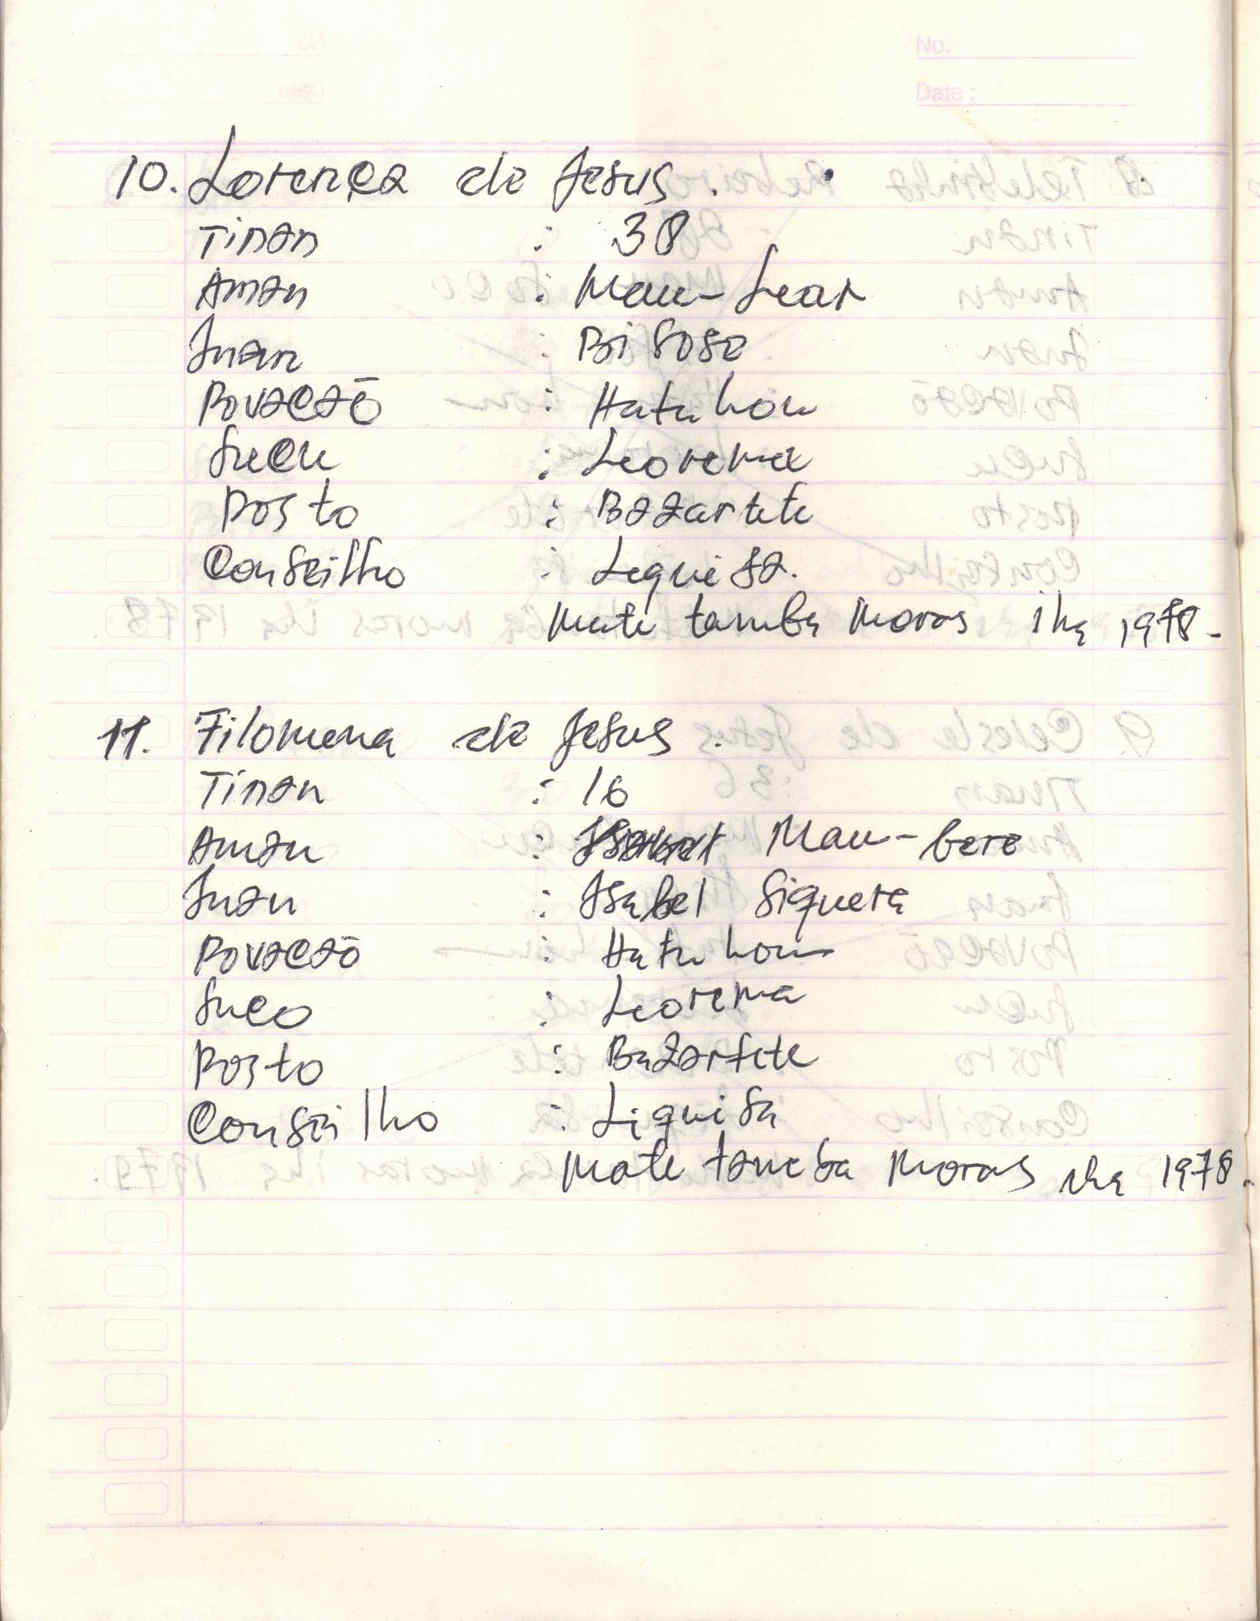 No.
Date:
10. Lorença de Jesus.
Tinan : 38
Aman : Mau-Lear
Inan : Bi Soso
Povação : Hatuhou
Sucu : Leorema
Posto : Bazartete
Conseilho : Liquisa.
Mate tamba Moras iha 1978-
11. Filomena de Jesus.
Tinan : 16
Aman : Mau-bere
Inan : Isabel Siquera
Povação : Hatuhou
Suco : Leorema
Posto : Bazartete
Conseilho : Liquisa
Mate tamba Moras iha 1978-